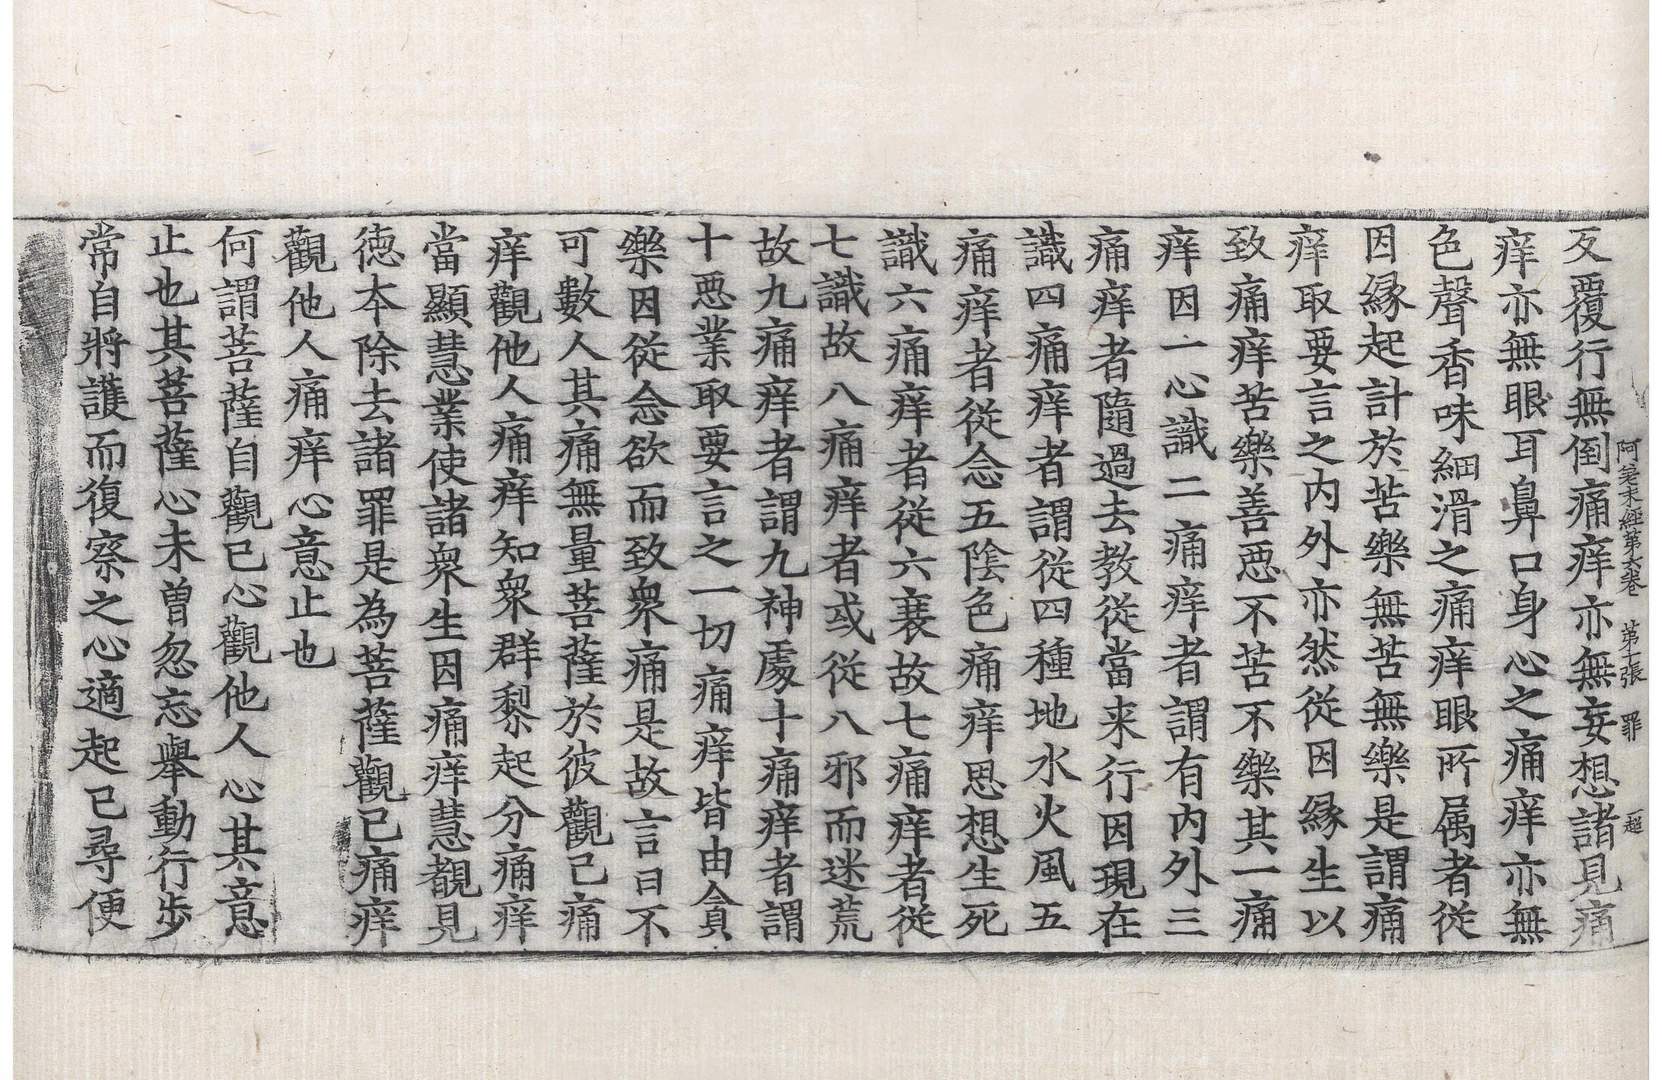 阿差末經第六卷 第二張 罪
反覆行無倒痛痒亦無妄想諸見痛
痒亦無眼耳鼻口身心之痛痒亦無
色聲香味細滑之痛痒眼所属者從
因縁起計於苦樂無苦無樂是謂痛
痒取要言之內外亦然從因縁生以
致痛痒苦樂善惡不苦不樂其一痛
痒因一心識二痛痒者謂有內外三
痛痒者隨過去教從當来行因現在
識四痛痒者謂從四種地水火風五
痛痒者從念五陰色痛痒思想生死
識六痛痒者從六衰故七痛痒者從
七識故八痛痒者或從八邪而迷荒
故九痛痒者謂九神處十痛痒者謂
十惡業取要言之一切痛痒皆由貪
樂因從念欲而致衆痛是故言曰不
可數人其痛無量菩薩於彼觀己痛
痒觀他人痛痒知衆群黎起分痛痒
當顯慧業使諸衆生因痛痒慧覩見
德本除去諸罪是為菩薩觀己痛痒
觀他人痛痒心意止也
何謂菩薩自觀己心觀他人心其意
止也其菩薩心未曾忽忘舉動行步
常自將護而復察之心適起已尋便